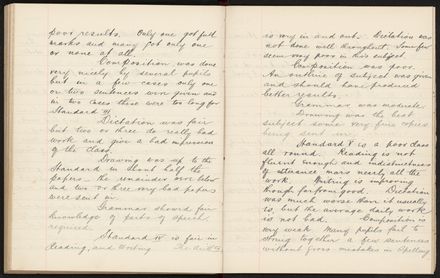 poor results. Only one got full
marks and many got only one
or none at all.
Composition was done
very nicely by several pupils
but in a few cases only one
or two sentences were given and
in two cases these were too long for
Standard III
Dictation was fair
but two or three do really bad
work and give a bad impression
of the class.
Drawing was up to the
Standard in about half the
papers the remainder were below
and two or three very bad papers
were sent in.
Grammar should fair
knowledge of parts of speech
required.
Standard IV is fair in
Reading, and Writing
is very in and out. Dictation was
not done well throughout. Some few
seem very poor in this subject.
Composition was poor.
An outline of subject was given
and should have produced
better results.
Grammar was moderate
Drawing was the best
subject some very fine copies
being sent in.
Standard V is a poor class
all round. Reading is not
fluent enough and indistinctness
of utterance mars nearly all the
work. Writing is improving
though far from good. Dictation
was much worse than it usually
is, but the average daily work
is not bad. Composition is
very weak. Many pupils fail to
string together a few sentences
without gross mistakes in spelling